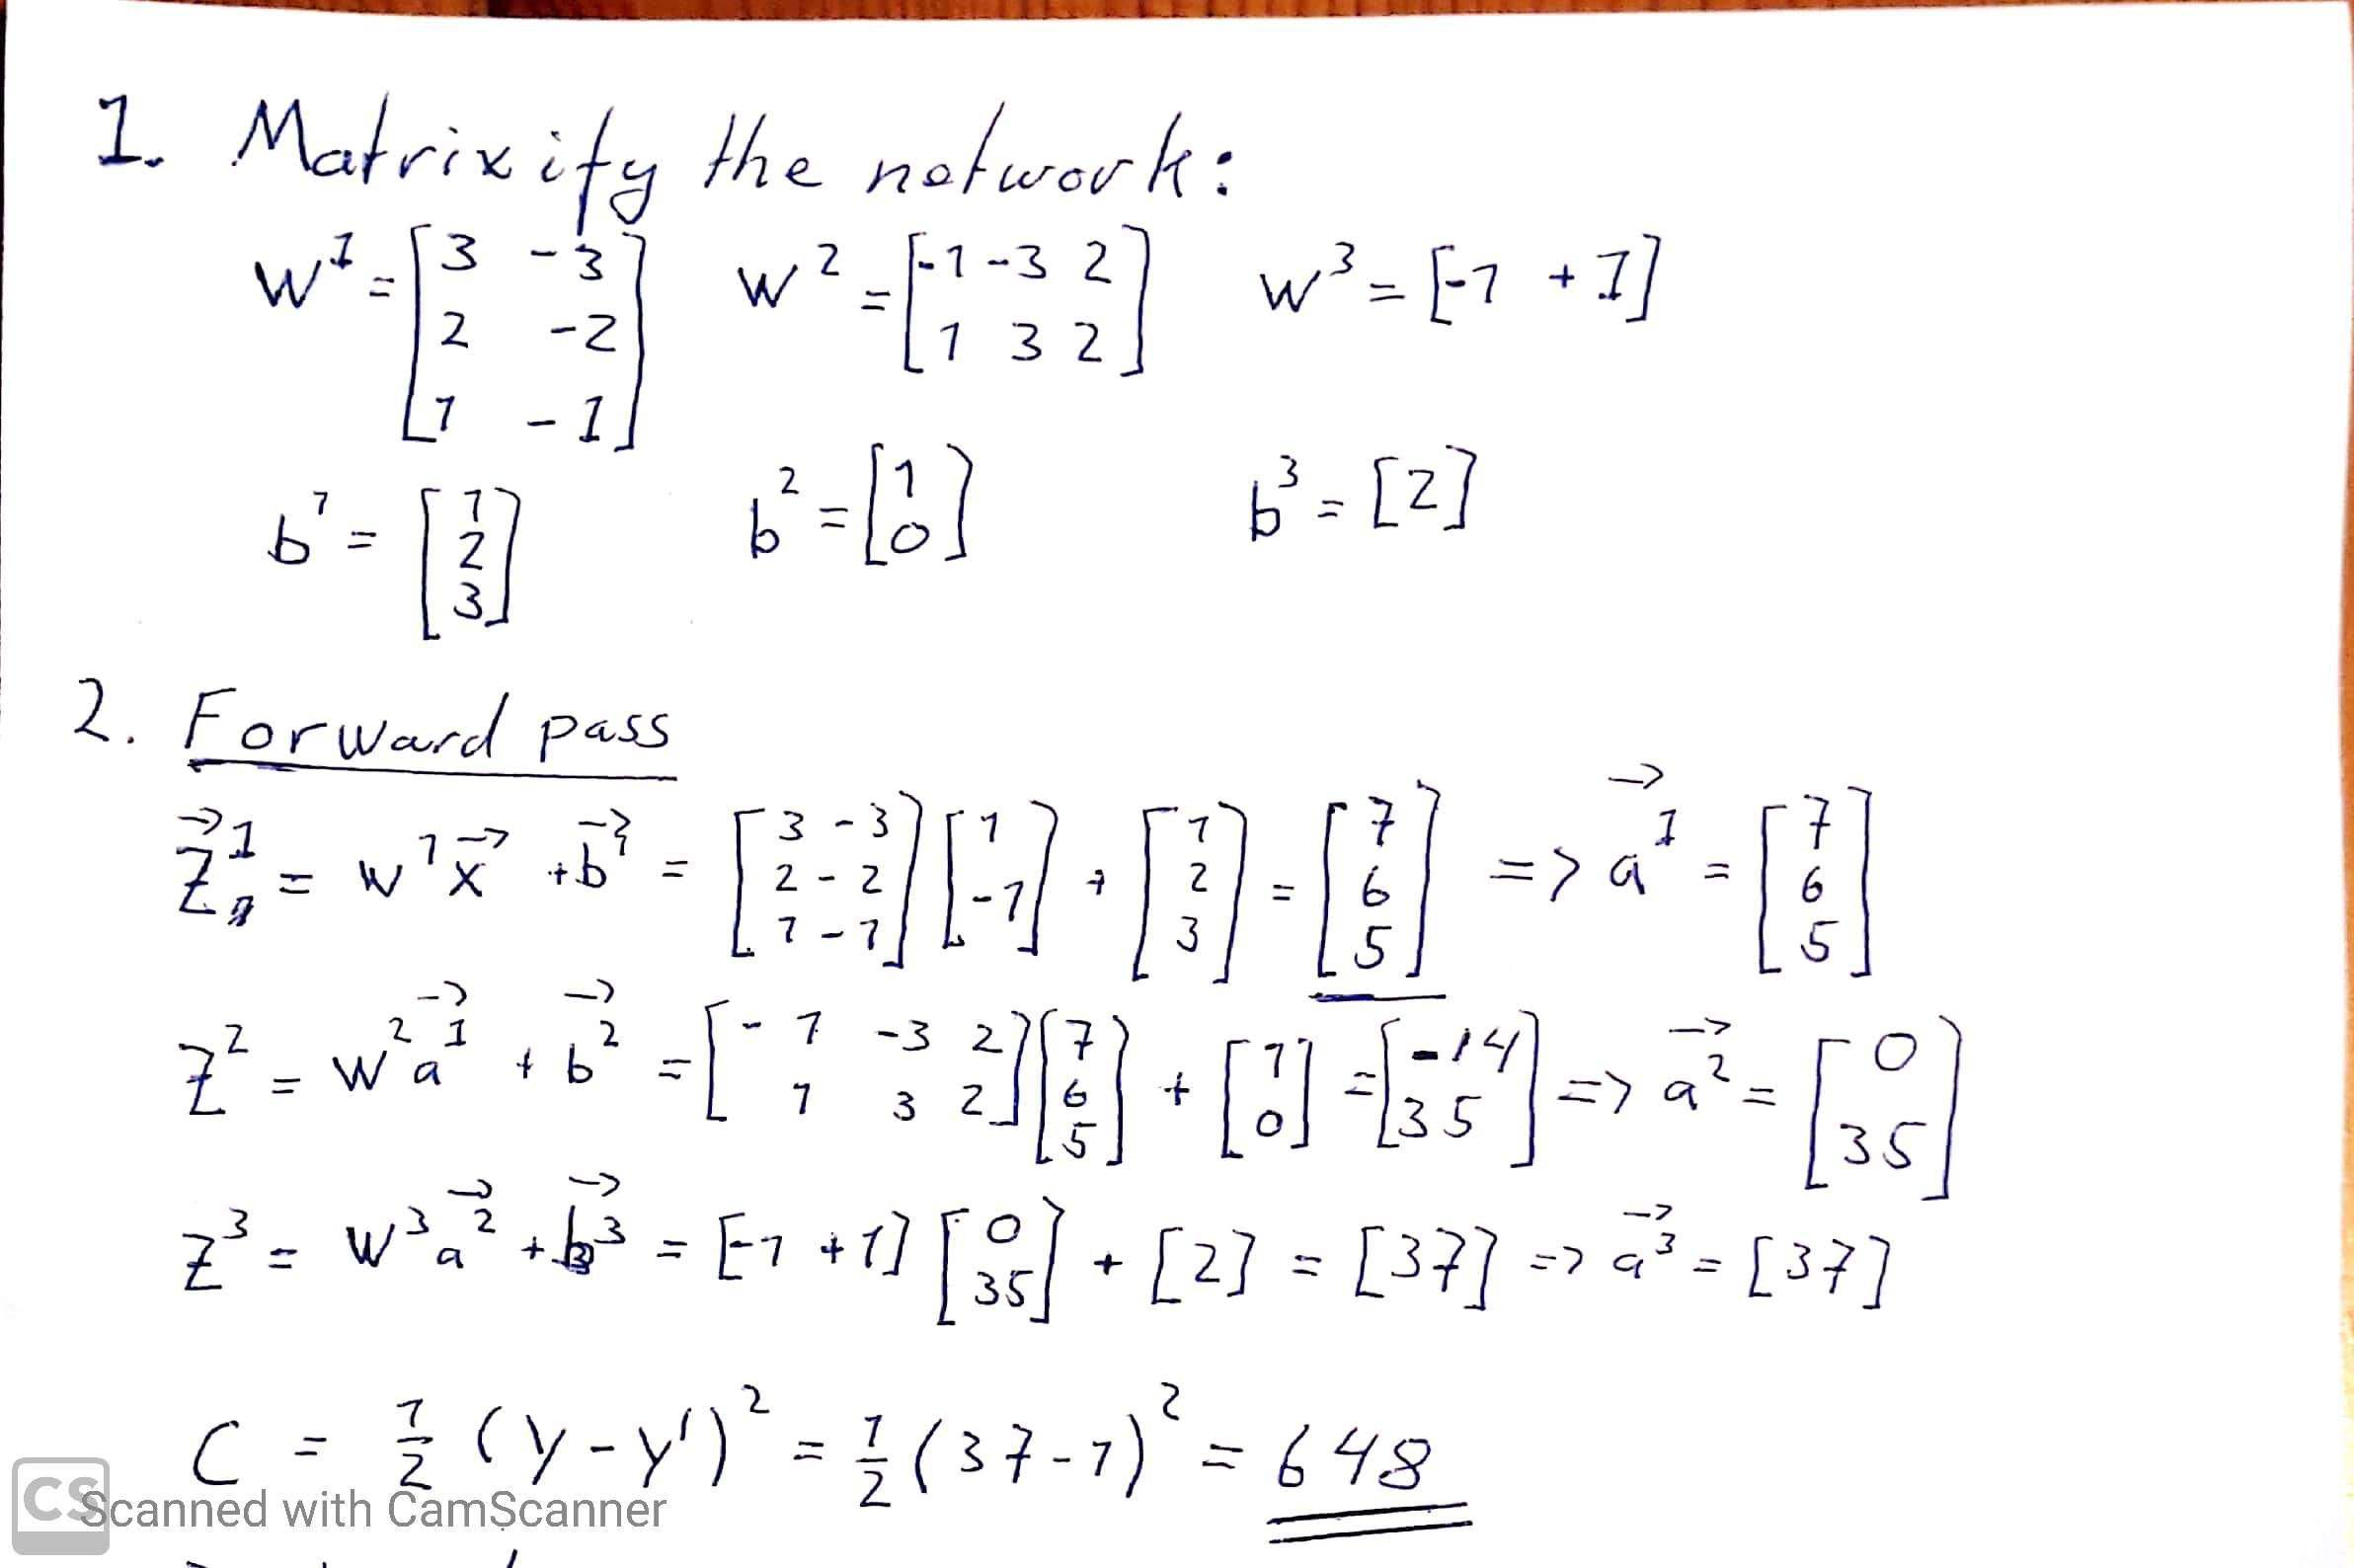 1. Matrixify the network:
w¹ = [3 -3; 2 -2; 1 -1] w² = [-1 -3 2; 1 3 2] w³ = [-1 +1]
b¹ = [1; 2; 3] b² = [1; 0] b³ = [2]
2. Forward pass
z⃗¹ = w¹x⃗ + b⃗¹ = [3 -3; 2 -2; 1 -1] [1; -1] + [1; 2; 3] = [7; 6; 5] => a⃗¹ = [7; 6; 5]
z² = w²a⃗¹ + b⃗² = [-1 -3 2; 1 3 2] [7; 6; 5] + [1; 0] = [-14; 35] => a⃗² = [0; 35]
z³ = w³a⃗² + b⃗³ = [-1 +1] [0; 35] + [2] = [37] => a⃗³ = [37]
C = 1/2 (y - y')² = 1/2 (37 - 1)² = 648
CS Scanned with CamScanner